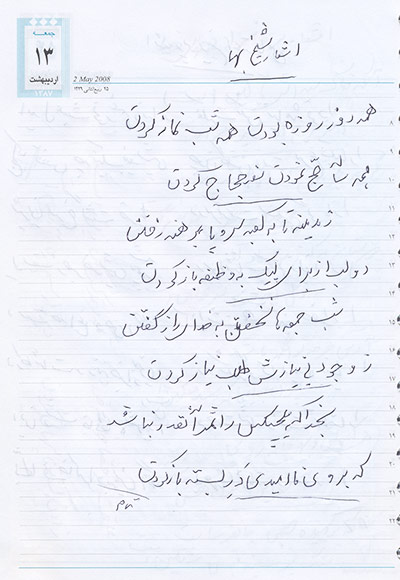 جمعه
۱۳
اردیبهشت
۱۳۸۷
2 May 2008
۲۵ ربیع‌الثانی ۱۴۲۹
اشعار شیخ بها
همه روز روزه بودن همه شب نماز کردن
همه ساله حج نمودن سفر حجاز کردن
ز مدینه تا به کعبه سر و پا برهنه رفتن
دو لب از برای لبیک به وظیفه باز کردن
شب جمعه ها نخفتن به خدای راز گفتن
ز وجود بی نیازش طلب نیاز کردن
بخدا که هیچکس را ثمر آنقدر نباشد
که بروی نا امیدی در بسته باز کردن